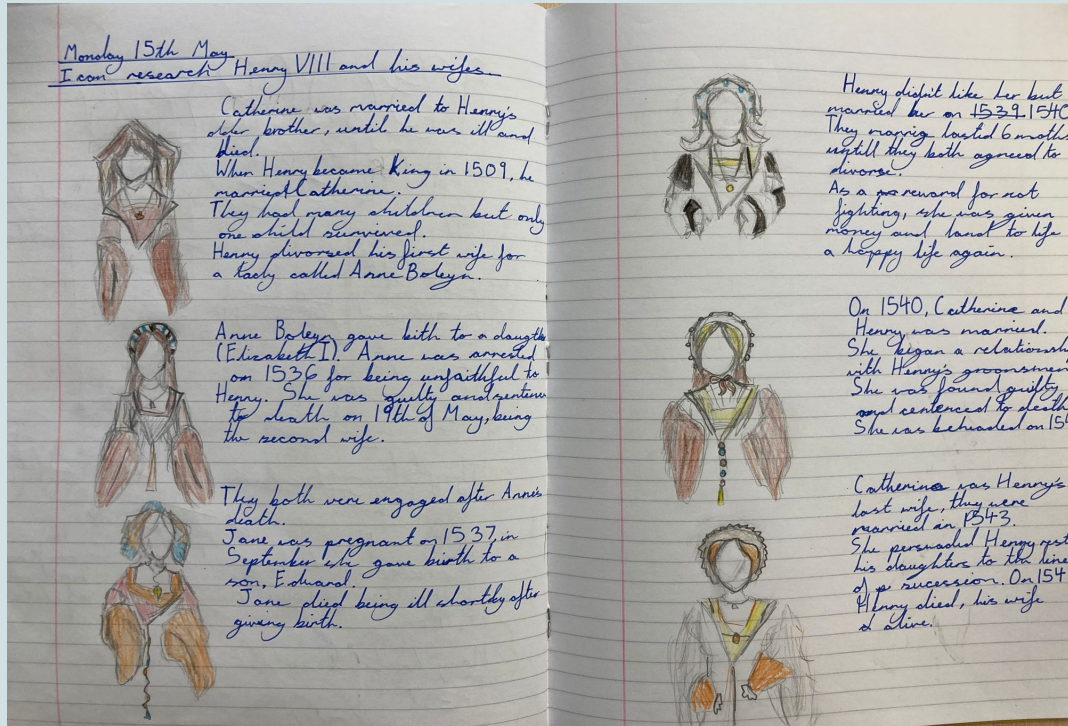 Monday 15th May
I can research Henry VIII and his wifes
Catherine was married to Henry's
older brother, until he was ill and
died.
When Henry became King in 1509, he
married Catherine.
They had many children but only
one child survived.
Henry divorsed his first wife for
a lady called Anne Boleyn.
Anne Boleyn gave bith to a daughte
(Elizabeth I). Anne was arrested
on 1536 for being unfaithful to
Henry. She was guilty and sentence
to death on 19th of May, being
the second wife.
They both were engaged after Anne's
death.
Jane was pregnant on 1537, in
September she gave birth to a
son, Edward.
Jane died being ill shortly after
giving birth.
Henry didn't like her but
married her on 1539 1540
They marrig lasted 6 moths
untill they both agreed to
divorse.
As a reward for not
fighting, she was given
money and land to life
a happy life again.
On 1540, Catherine and
Henry was married.
She began a relationsh
with Henry's groomsmen
She was found guilty
and centenced to death
She was beheaded on 154
Catherine was Henry's
last wife, they were
married in 1543.
She persuaded Henry rest
his daughters to the line
of sucession. On 154
Henry died, his wife
alive.